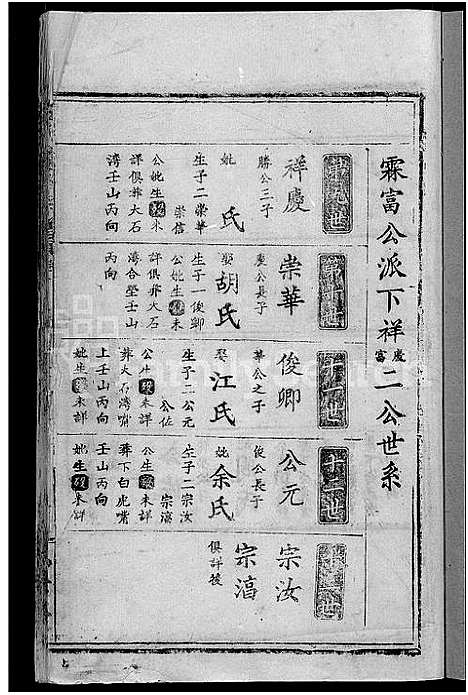 霖富公派下祥慶富二公世系
第九世
祥慶
勝公三子
妣 氏
生子二崇華
崇信
公妣生殁未
詳俱葬大石
灣壬山丙向
第十世
崇華
慶公長子
娶胡氏
生子一俊卿
公妣生殁未
詳俱葬火石
灣合塋壬山
丙向
十一世
俊卿
華公之子
娶江氏
生子二公元
公佐
公生殁未詳
葬火石灣嘴
上壬山丙向
妣生殁未詳
十二世
公元
俊公長子
妣余氏
生子二宗汝
宗滈
公生殁未詳
葬下白虎嘴
壬山丙向
妣生殁未詳
十三世
宗汝
宗滈
俱詳後